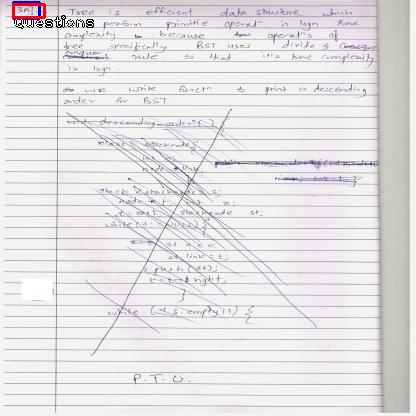 3A)
Questions
Tree is efficient data structure which
perform primitive operatⁿ in logn time
complexity because operatⁿs of
tree specifically BST uses divide &
conquer rule so that it's time complexity
is logn.
we write functⁿ to print in descending
order for BST.
void descending_order( )
class stacknode {
int n;
node * link;
stack < stacknode > s;
node * t; int n;
t = root stacknode st;
while (t != NULL) {
st n = 0;
st link = t;
s.push (st);
right;
}
while ( ! s.empty( )) {
P.T.O.